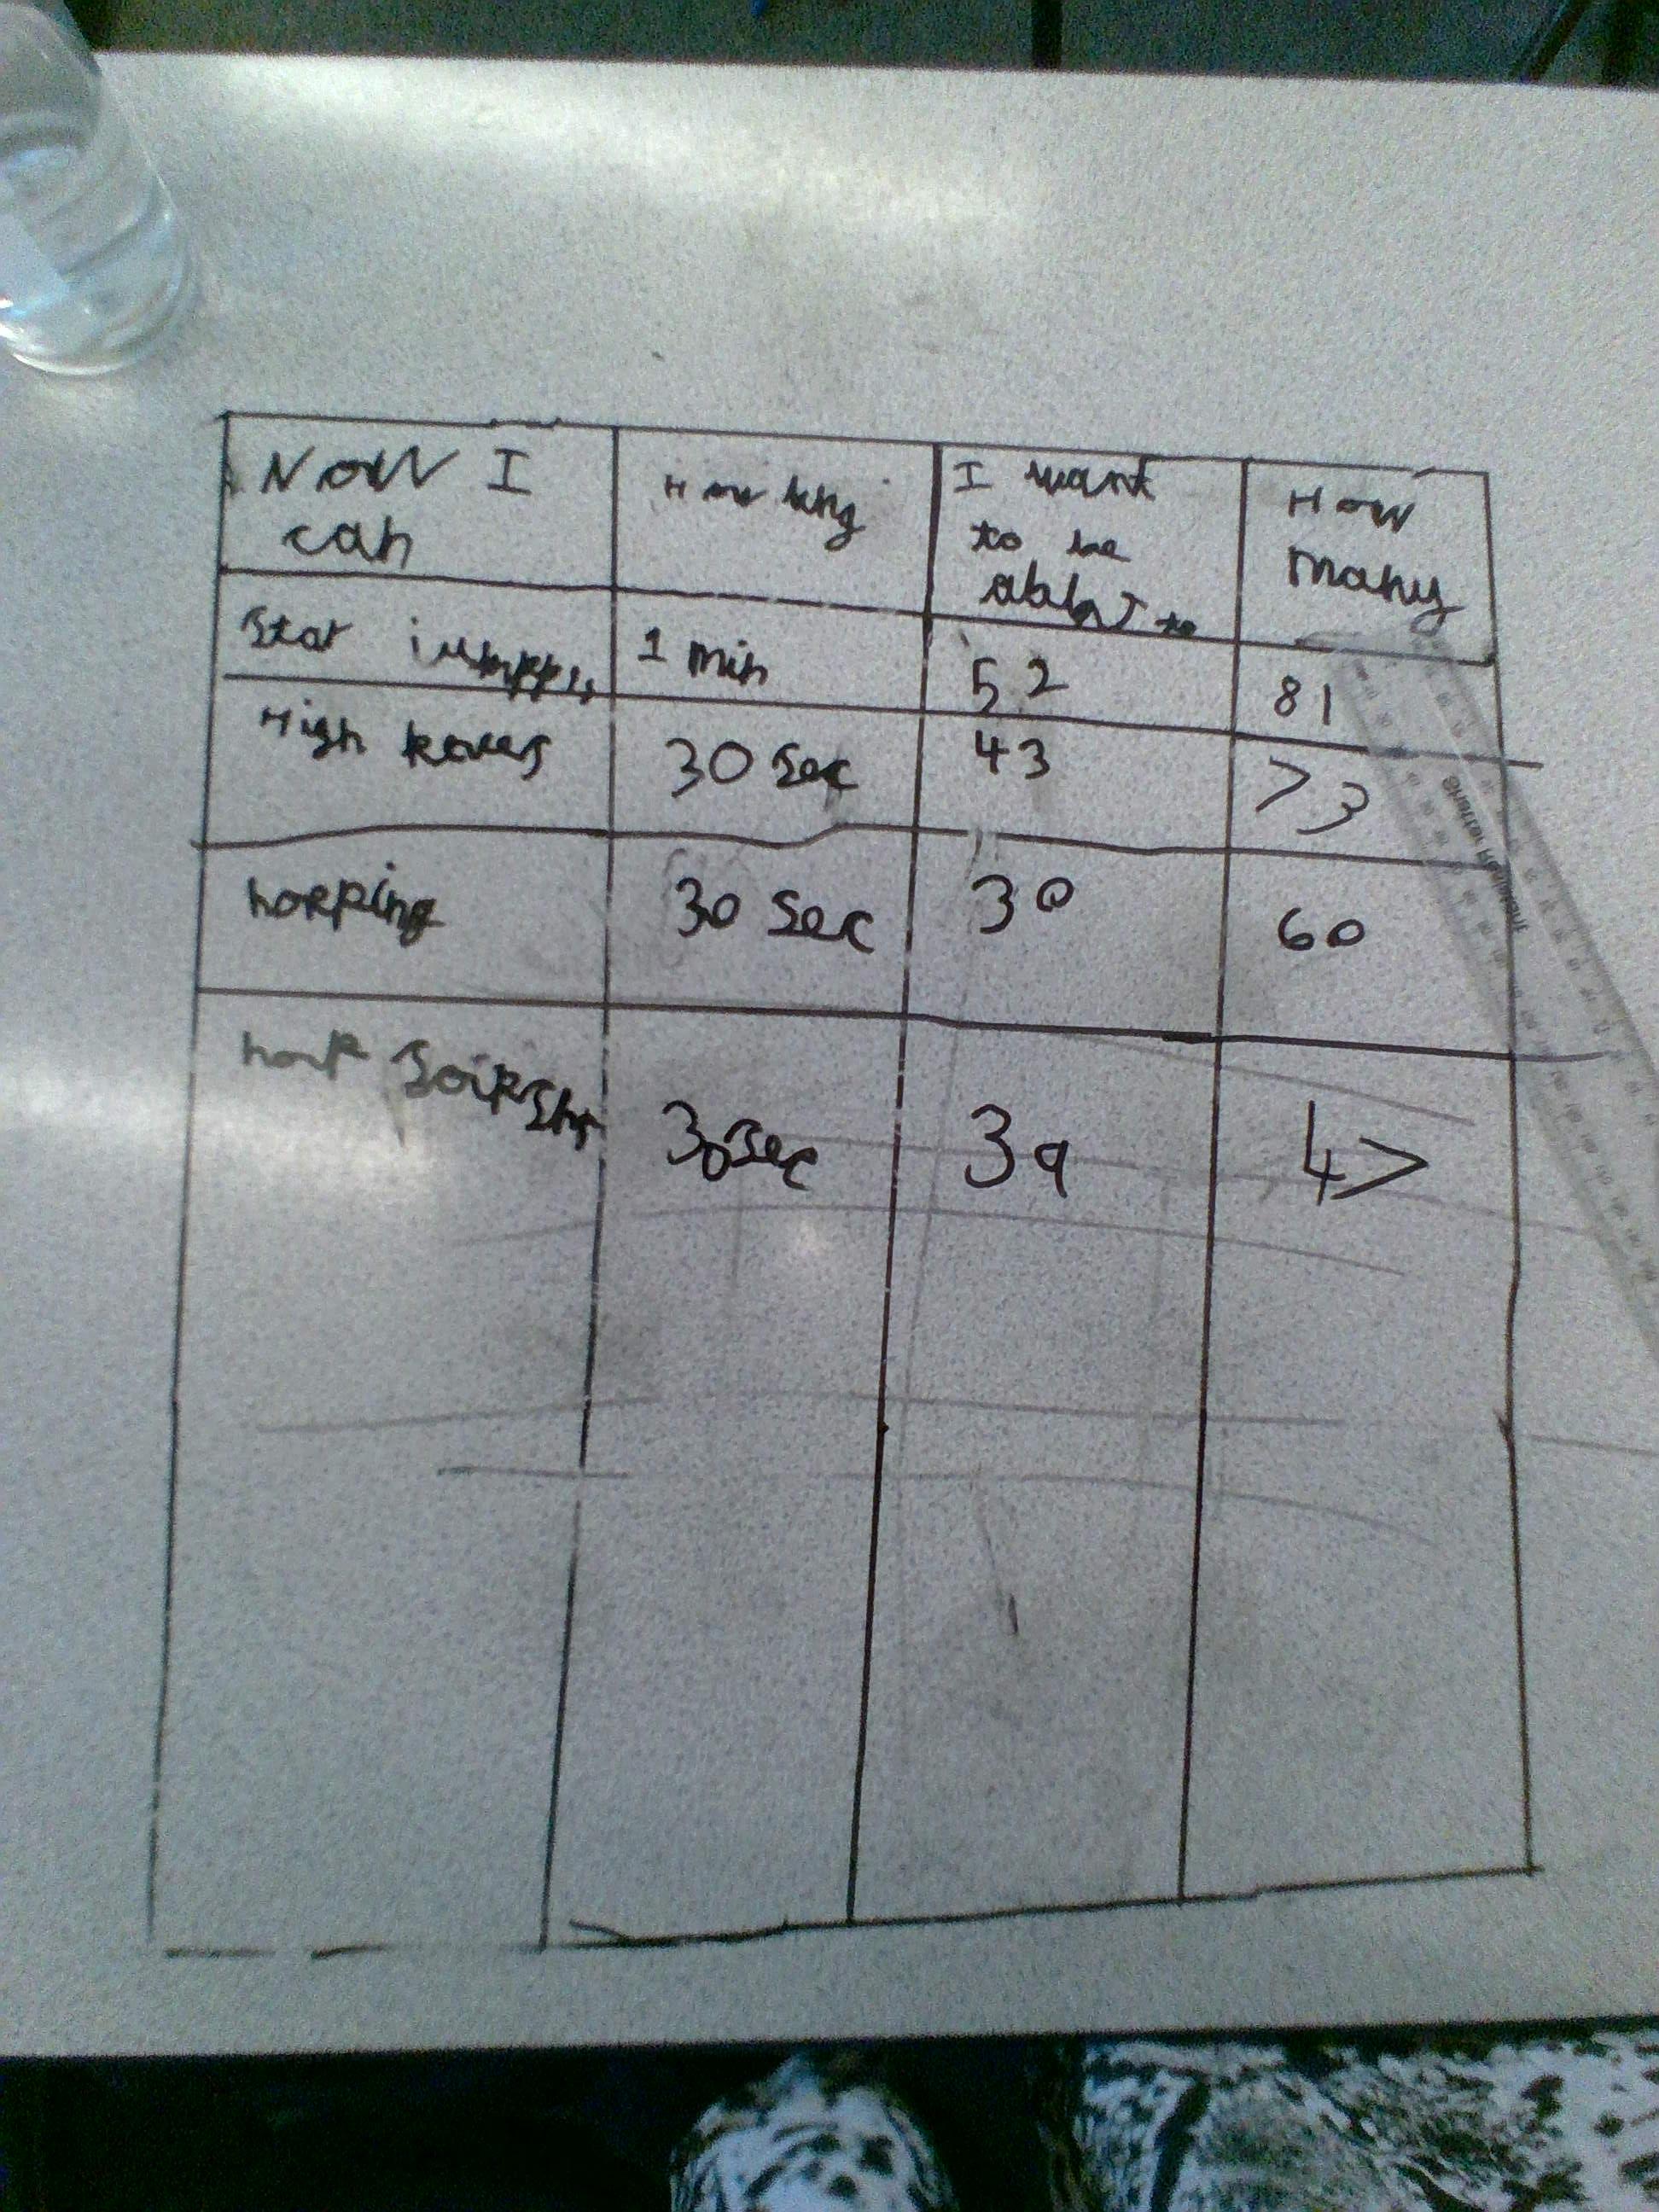 NOW I How long I want How
can to be many
able I to
Star jumpps 1 min 52 81
High knees 30 Sec 43 73
hopping 30 Sec 30 60
30 Sec 39 47